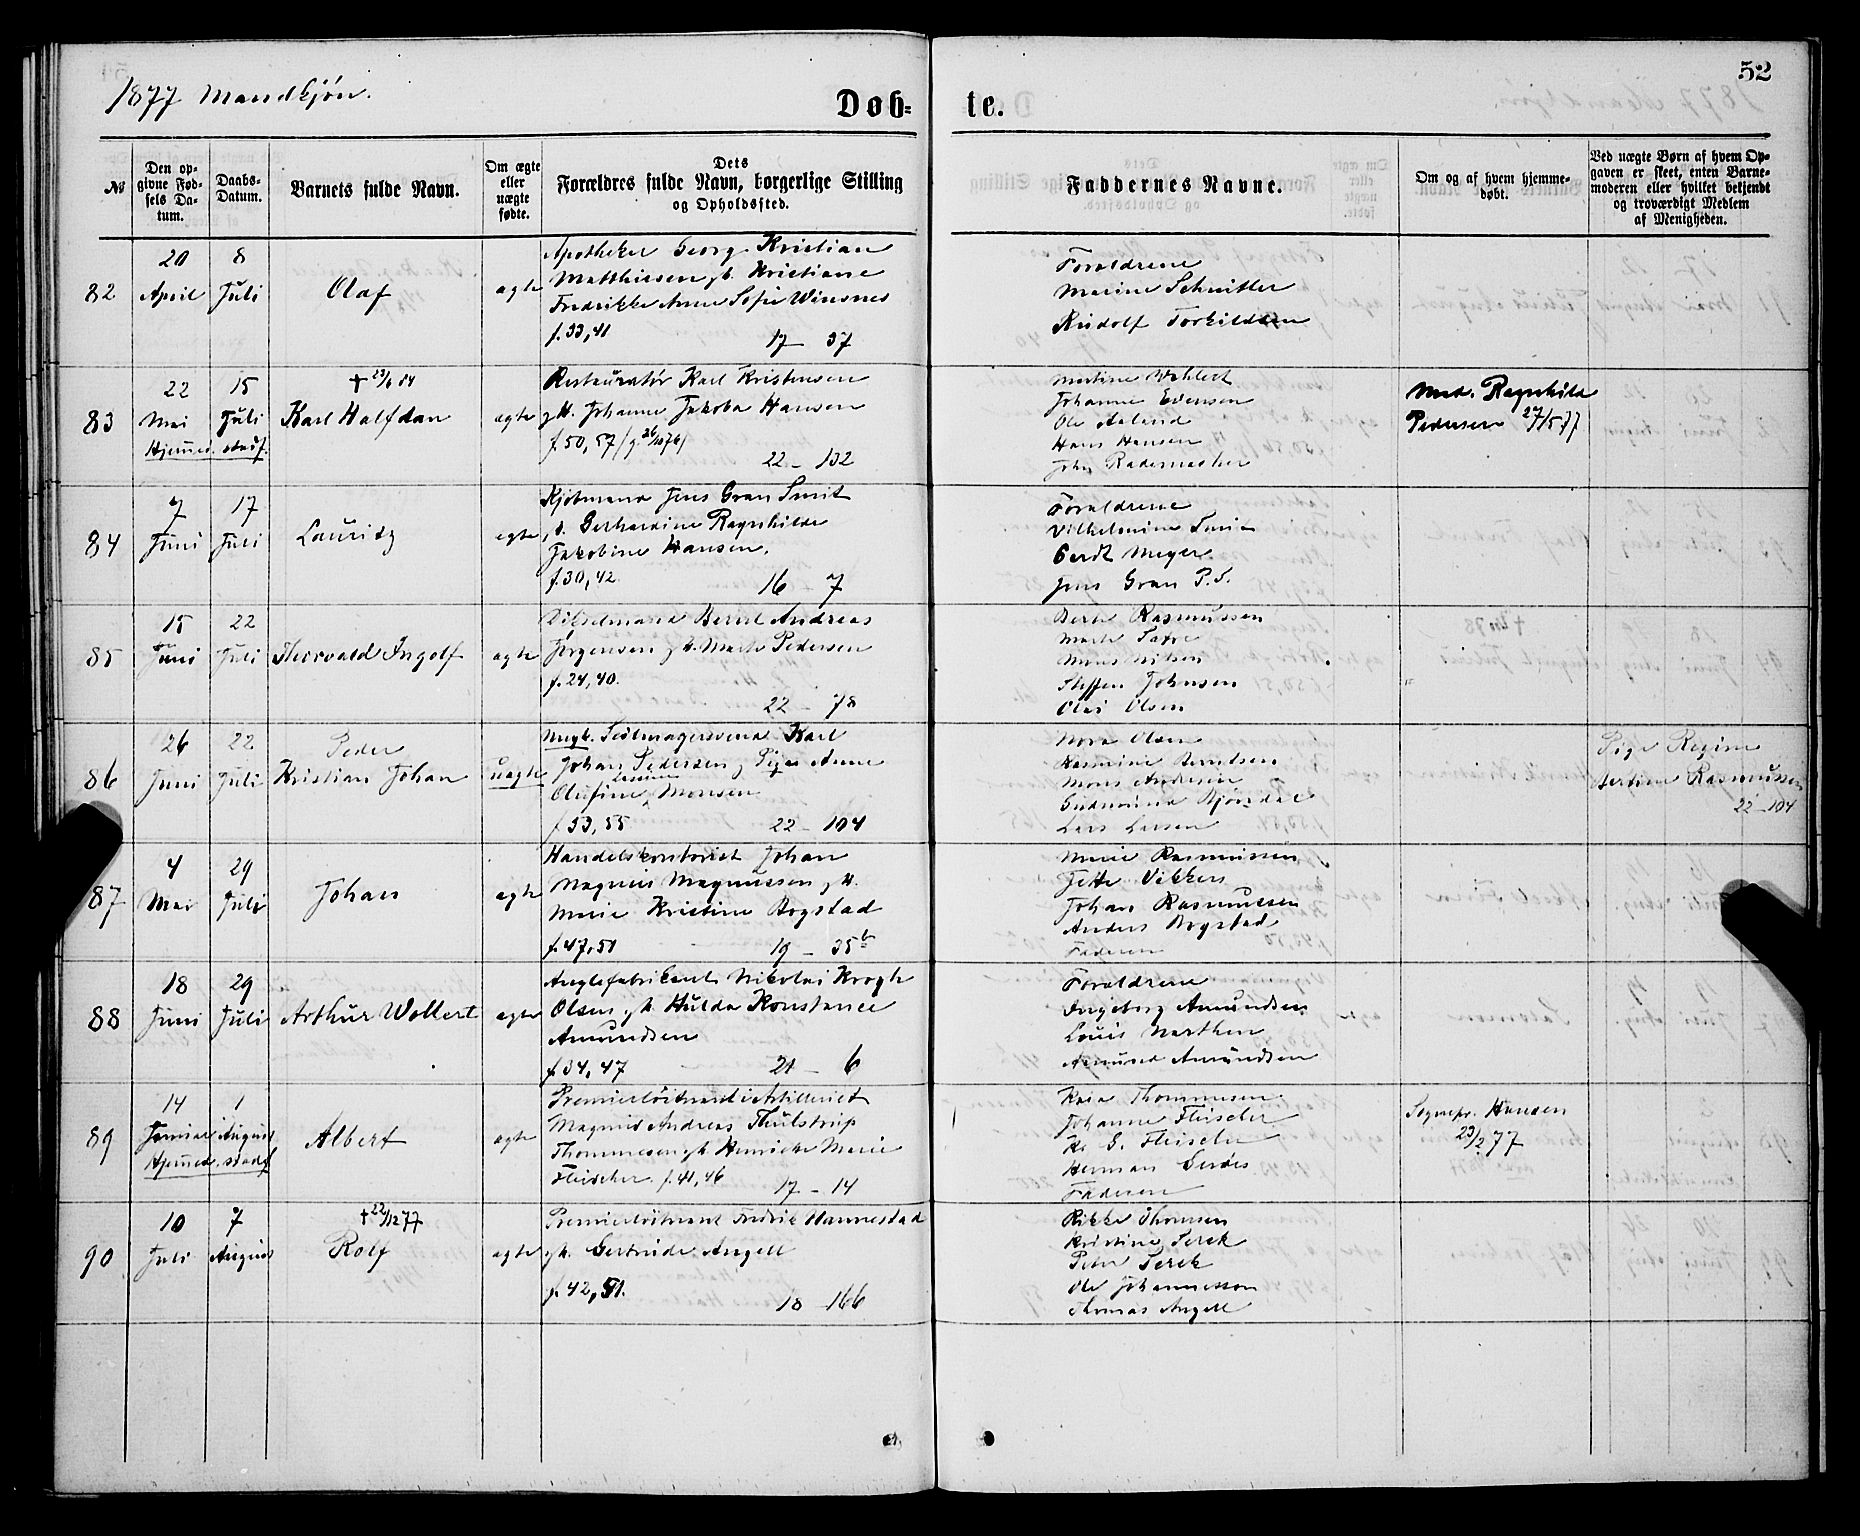 1877 Mandkjön.
Døb-
te.
52
№
Den op-
givne Fød-
sels Da-
tum.
Daabs-
Datum.
Barnets fulde Navn.
Om ægte
eller
uægte
fødte.
Dets
Forældres fulde Navn, borgerlige Stilling
og Opholdssted.
Faddernes Navne.
Om og af hvem hjemme-
døbt.
Ved uægte Børn af hvem Op-
gaven er skeet, enten Barne-
moderen eller hvilket bekjendt
og troværdigt Medlem
af Menigheden.
82
20
April
8
Juli
Olaf
ægte
Apotheker Georg Kristian
Matthiesen g h. Kristiane
Fredrikke Anna Sofie Winsnes
f. 33, 41
17 37
Forældrene
Marine Schnitler
Rudolf Torkildsen
83
22
Mai
15
Juli
Hjemmed. stadf.
† 23/6 84
Karl Halfdan
ægte
Restauratör Karl Kristensen
g H. Johanne Jakoba Hansen
f. 50, 57 (g. 26/10 76)
22 - 132
Martine
Johanne Evensen
Ole Aaland
Hans Hansen
John Rademacher
Mad. Ragnhild
Pedersen 27/5 77
84
7
Juni
17
Juli
Lauritz
ægte
Kjöbmand Jens Gran Smit
Gerhardine Ragnhilde
Jakobine Hansen.
f. 30, 42.
16 - 7
Forældrene
Vilhelmine Smit
Gerdt Meyer
Jens Gran P. S.
85
15
Juni
22
Juli
Thorvald Ingolf
ægte
Bernt Andreas
Jörgensen g h. Marte Pedersen
f. 24, 40.
22 - 78
Berte Rasmussen
Marte
Mons Nilsen
Steffen Johnsen
Olai Olsen
86
26
Juni
22
Juli
Peder
Kristian Johan
uægte
Ungk. Seilmagersvend Karl
Johan Pedersen g Pige Anne
Olufine Monsen
f. 53, 55
22 - 104
Nora Olsen
Rasmine Berntsen
Mons Andersen
Gudmund Björsdal
Lars Larsen
Pige Regine
Bertine Rasmussen
22 - 104
87
4
Mai
29
Juli
Johan
ægte
Handelskontorist Johan
Magnus Magnussen g H.
Marie Kristine Bogstad
f. 47, 51
19 - 35 b
Marie Rasmussen
Jette Vikkers
Johan Rasmussen
Anders Bogstad
Faderen
88
18
Juni
29
Juli
Arthur Wollert
ægte
Nikolai Krogh
Olsen g h. Hulda Konstance
Amundsen
f. 34, 47
21 - 6
Forældrene
Ingeborg Amundsen
Louis Narthen
Amund Amundsen
89
14
Januar
1
August
Hjemmed. stadf.
Albert
ægte
Premierlöitnant i Artilleriet
Magnus Andreas Thulstrup
Thommesen g h. Henriette Marie
Fleischer. f. 41, 46
17 - 14
Kaia Thommesen
Johanne Fleischer
Kr. G. Fleischer
Herman Gerdes
Faderen
Sognepr. Hansen
23/2 77
90
10
Juli
7
August
† 22/12 77
Rolf
ægte
Premierlöitnant Fredrik Hannestad
g h. Gertrude Angell
f. 42, 51.
18 - 166
Rikke Thomsen
Kristine Serck
Peter Serck
Ole Johannessen
Thomas Angell